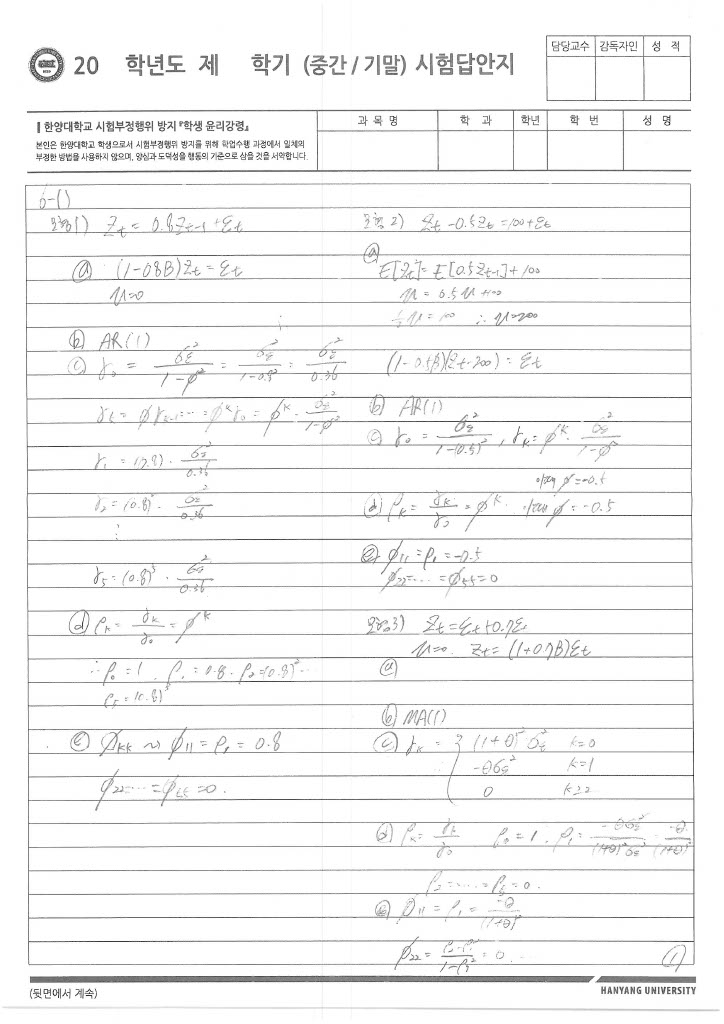 20 학년도 제 학기 (중간 / 기말) 시험답안지
담당교수 감독자인 성 적
한양대학교 시험부정행위 방지 『학생 윤리강령』
본인은 한양대학교 학생으로서 시험부정행위 방지를 위해 학업수행 과정에서 일체의
부정한 방법을 사용하지 않으며, 양심과 도덕성을 행동의 기준으로 삼을 것을 서약합니다.
과 목 명 학 과 학년 학 번 성 명
6-1)
모형1) Zt = 0.8Zt-1 + εt
ⓐ (1-0.8B)Zt = εt
μ=0
ⓑ AR(1)
ⓒ γ0 = σε² / 1-φ² = σε² / 1-0.8² = σε² / 0.36
γk = φγk-1 = ... = φ^k γ0 = φ^k · σε² / 1-φ²
γ1 = (0.8) · σε² / 0.36
γ2 = (0.8)² · σε² / 0.36
⋮
γ5 = (0.8)^5 · σε² / 0.36
ⓓ ρk = γk / γ0 = φ^k
∴ ρ0 = 1, ρ1 = 0.8, ρ2 = (0.8)² ...
ρ5 = (0.8)^5
ⓔ φkk ~> φ11 = ρ1 = 0.8
φ22 = ... = φkk = 0.
모형 2) Zt - 0.5Zt = 100 + εt
ⓐ
E[Zt] = E[0.5Zt-1] + 100
μ = 0.5μ + 100
½μ = 100 ∴ μ = 200
(1-0.5B)(Zt-200) = εt
ⓑ AR(1)
ⓒ γ0 = σε² / 1-(0.5)², γk = φ^k · σε² / 1-φ²
이때 φ = -0.5
ⓓ ρk = γk / γ0 = φ^k 이때 φ = -0.5
ⓔ φ11 = ρ1 = -0.5
φ22 = ... = φ55 = 0
모형3) Zt = εt + 0.7ε
μ=0. Zt = (1+0.7B)εt
ⓐ
ⓑ MA(1)
ⓒ γk = { (1+θ)² σε² k=0
-θσε² k=1
0 k≥2
ⓓ ρk = γk / γ0 ρ0 = 1, ρ1 = -θσε² / (1+θ)²σε² = -θ / (1+θ)²
ρ2 = ... = ρ5 = 0.
ⓔ φ11 = ρ1 = -θ / (1+θ)²
φ22 = ρ2-ρ1² / 1-ρ1² = 0. ...
①
(뒷면에서 계속)
HANYANG UNIVERSITY